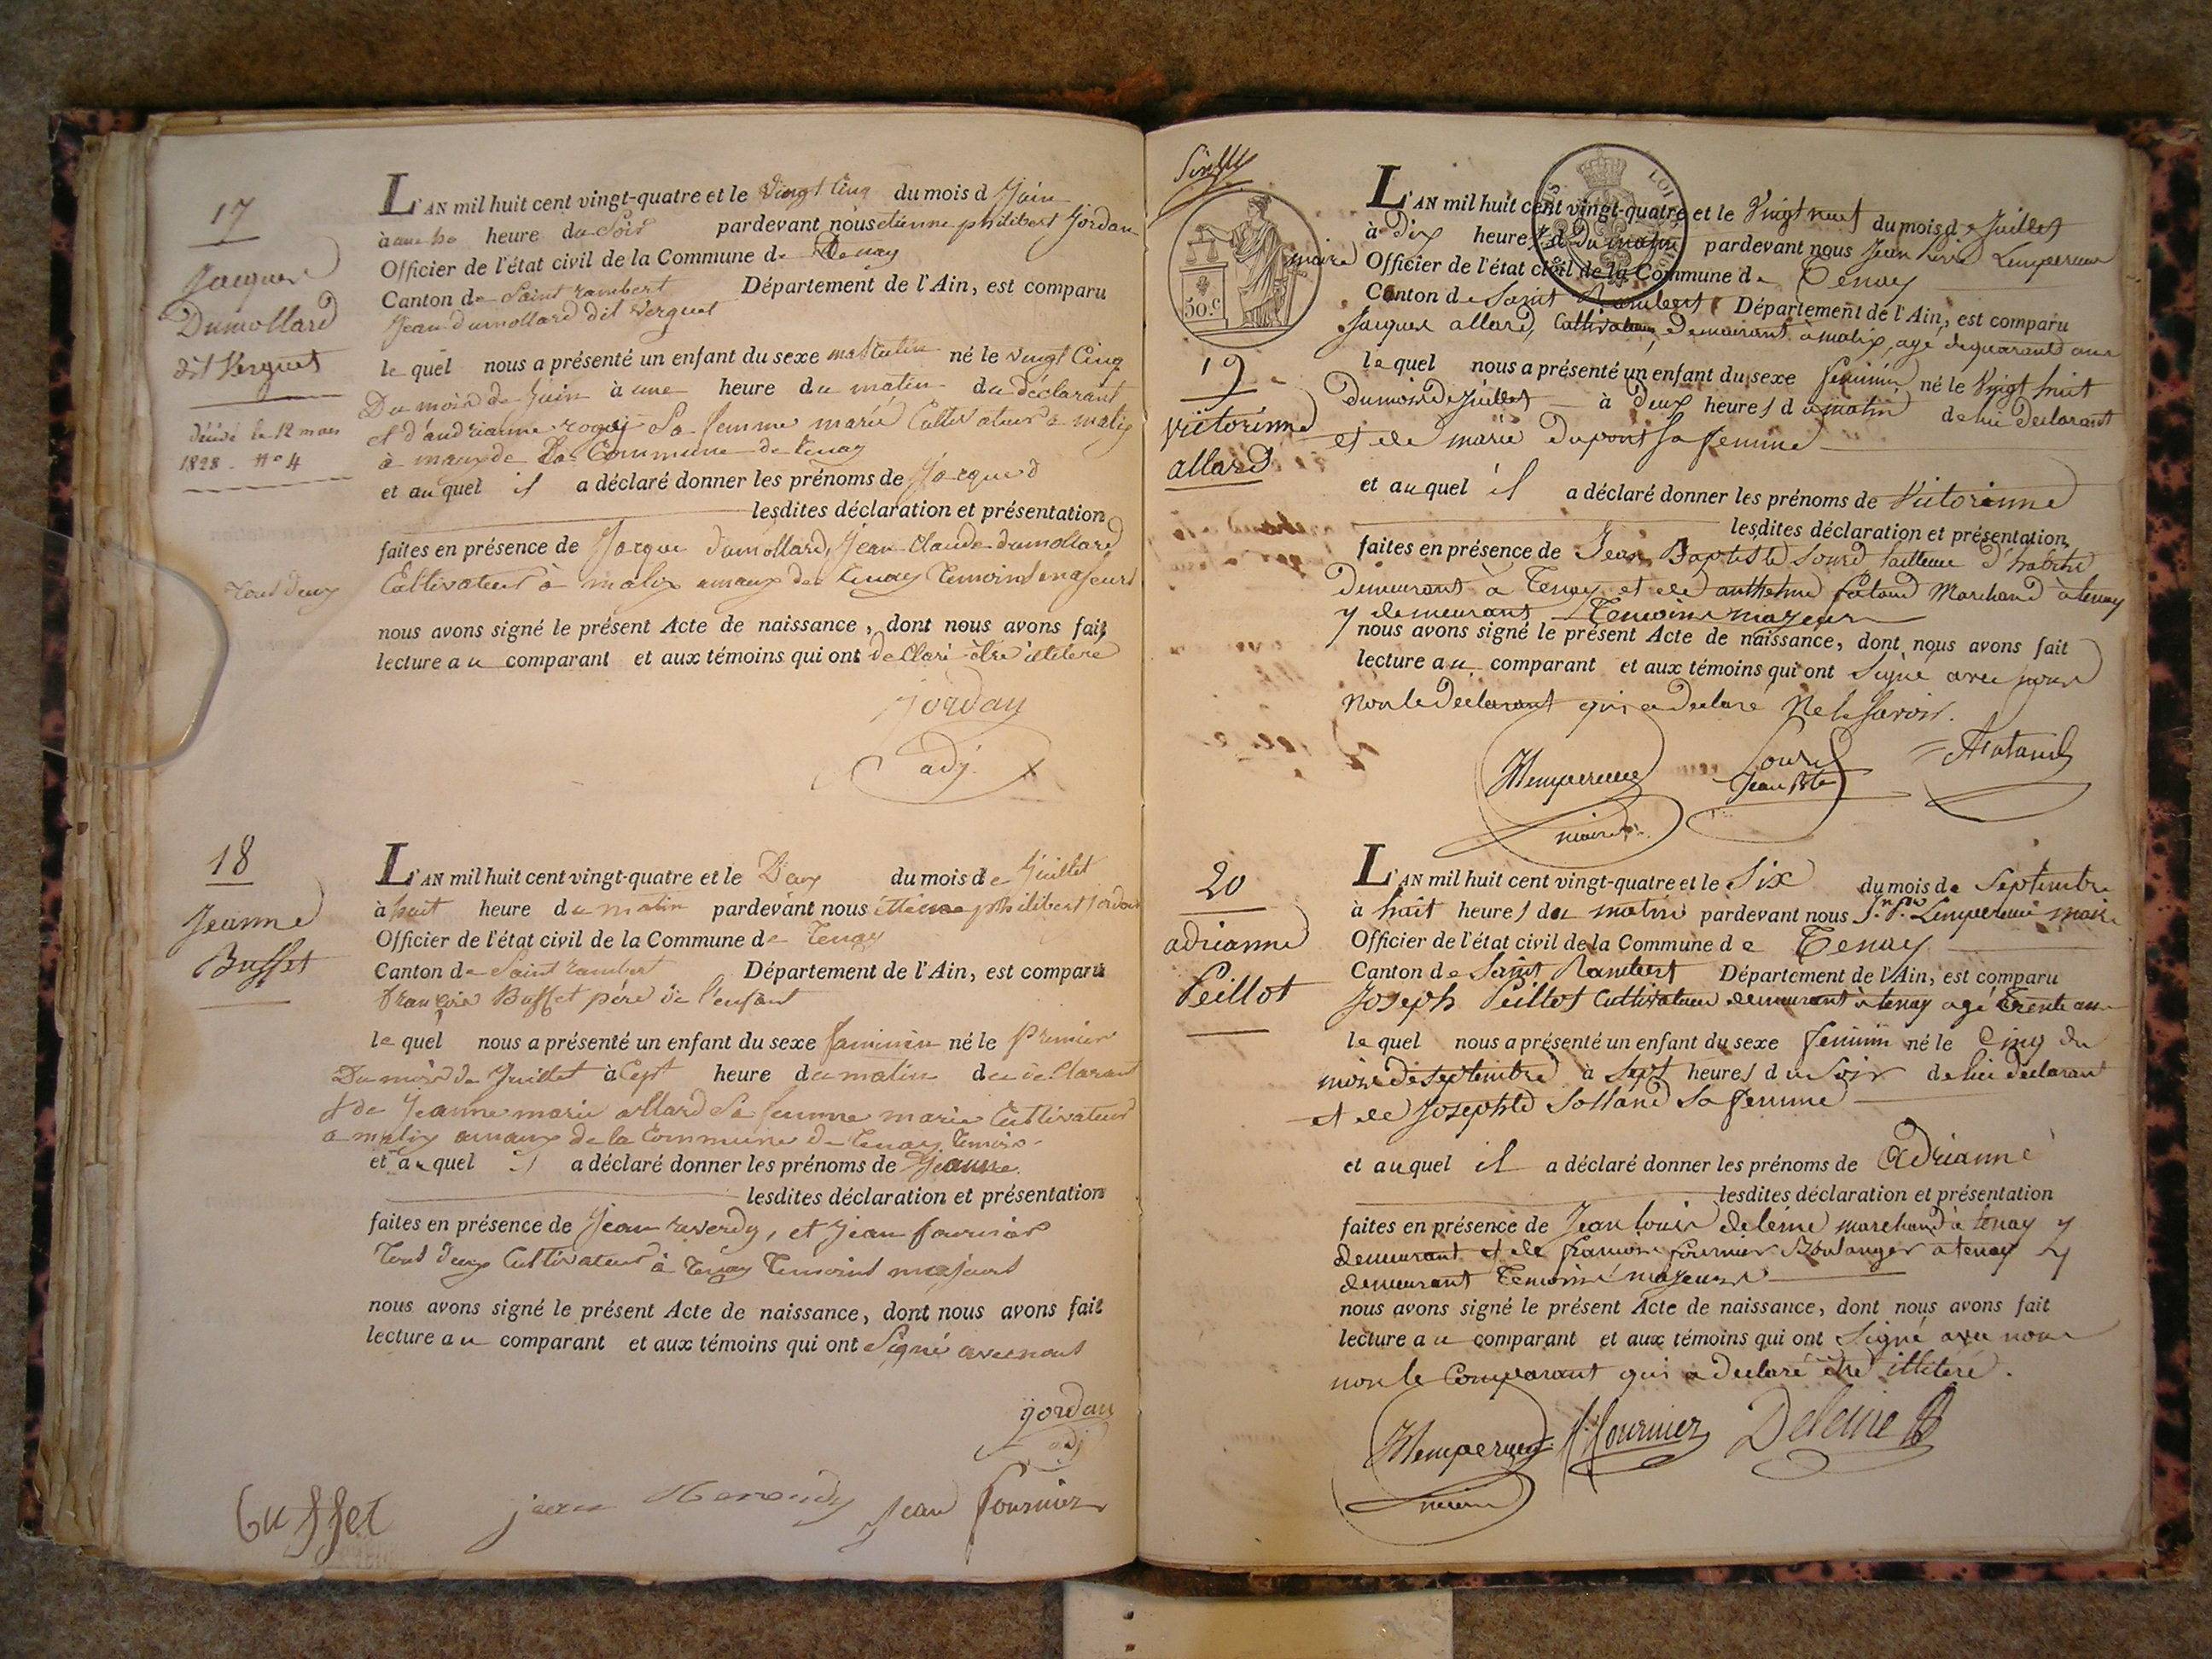 17
Jacques
Dumollard
dit Verguet
décédé le 12 mars
1828 - No 4
Tout deux
L'AN mil huit cent vingt-quatre et le vingt Cinq du mois d Juin
heure du Soir pardevant nous étienne philibert Jordan
Officier de l'état civil de la Commune de Tenay
Canton de Saint rambert Département de l'Ain, est comparu
Jean dumollard dit Verguet
le quel nous a présenté un enfant du sexe masculin né le vingt Cinq
Du mois de Juin à une heure du matin du déclarant
et d'andrianne Sa femme marié Cultivateur à malix
à de La Commune de tenay
et au quel il a déclaré donner les prénoms de Jacques
lesdites déclaration et présentation
faites en présence de Jacque dumollard, Jean Claude dumollard
Cultivateur à malix de tenay Temoins majeurs
nous avons signé le présent Acte de naissance, dont nous avons fait
lecture au comparant et aux témoins qui ont déClaré être illitére
jordan
adj.
18
Jeanne
Buffet
L'AN mil huit cent vingt-quatre et le Deux du mois de Juillet
à huit heure du matin pardevant nous philibert Jordan
Officier de l'état civil de la Commune de Tenay
Canton de Saint rambert Département de l'Ain, est comparu
François Buffet père de l'enfant
le quel nous a présenté un enfant du sexe faminin né le Premier
Du mois de Juillet à Sept heure du matin du déClarant
& de Jeanne marie allard Sa femme marié Cultivateur
a malix de la Commune de Tenay
et au quel il a déclaré donner les prénoms de Jeanne
lesdites déclaration et présentation
faites en présence de Jean reverdy, et Jean fournier
Tout deux Cultivateur à Tenay Temoins majeurs
nous avons signé le présent Acte de naissance, dont nous avons fait
lecture au comparant et aux témoins qui ont Signé avec nous
jordan
adj
buffet jean Jean fournier
50.C
19
victorinne
allard
L'AN mil huit cent vingt-quatre et le Vingt neuf du mois de Juillet
à Dix heures du matin pardevant nous Jean Lempereur
maire Officier de l'état civil de la Commune de Tenay
Canton de Saint Rambert Département de l'Ain, est comparu
Jacques allard, Cultivateur, Demeurant à malix, agé de quarante ans
le quel nous a présenté un enfant du sexe feminin né le Vingt huit
du mois de Juillet à Deux heures du matin de lui declarant
et de marie Dupont sa femme
et au quel il a déclaré donner les prénoms de Victorinne
lesdites déclaration et présentation
faites en présence de Jean Baptiste Sourd, tailleur d'habits
Demeurant à Tenay et de anthelme Marchand à tenay
y demeurant, Temoins majeurs
nous avons signé le présent Acte de naissance, dont nous avons fait
lecture au comparant et aux témoins qui ont Signé avec nous
Non le Declarant qui a Declaré Ne le Savoir.
Lempereur Sourd
Jean Bte
maire
20
adrianne
Peillot
L'AN mil huit cent vingt-quatre et le Six du mois de Septembre
à huit heures du matin pardevant nous Lempereur maire
Officier de l'état civil de la Commune de Tenay
Canton de Saint Rambert Département de l'Ain, est comparu
Joseph Peillot Cultivateur demeurant à tenay agé Trente ans
le quel nous a présenté un enfant du sexe feminin né le Cinq du
mois de Septembre à Sept heures du Soir de lui declarant
et de Josephte Solland Sa femme
et au quel il a déclaré donner les prénoms de Adrianne
lesdites déclaration et présentation
faites en présence de Jean louis deleine marchand à tenay y
demeurant et de francois fournier Boulanger à tenay y
demeurant Temoins majeurs
nous avons signé le présent Acte de naissance, dont nous avons fait
lecture au comparant et aux témoins qui ont Signé avec nous
non le Comparant qui a declaré etre illiteré.
Lempereur fournier Deleine
maire